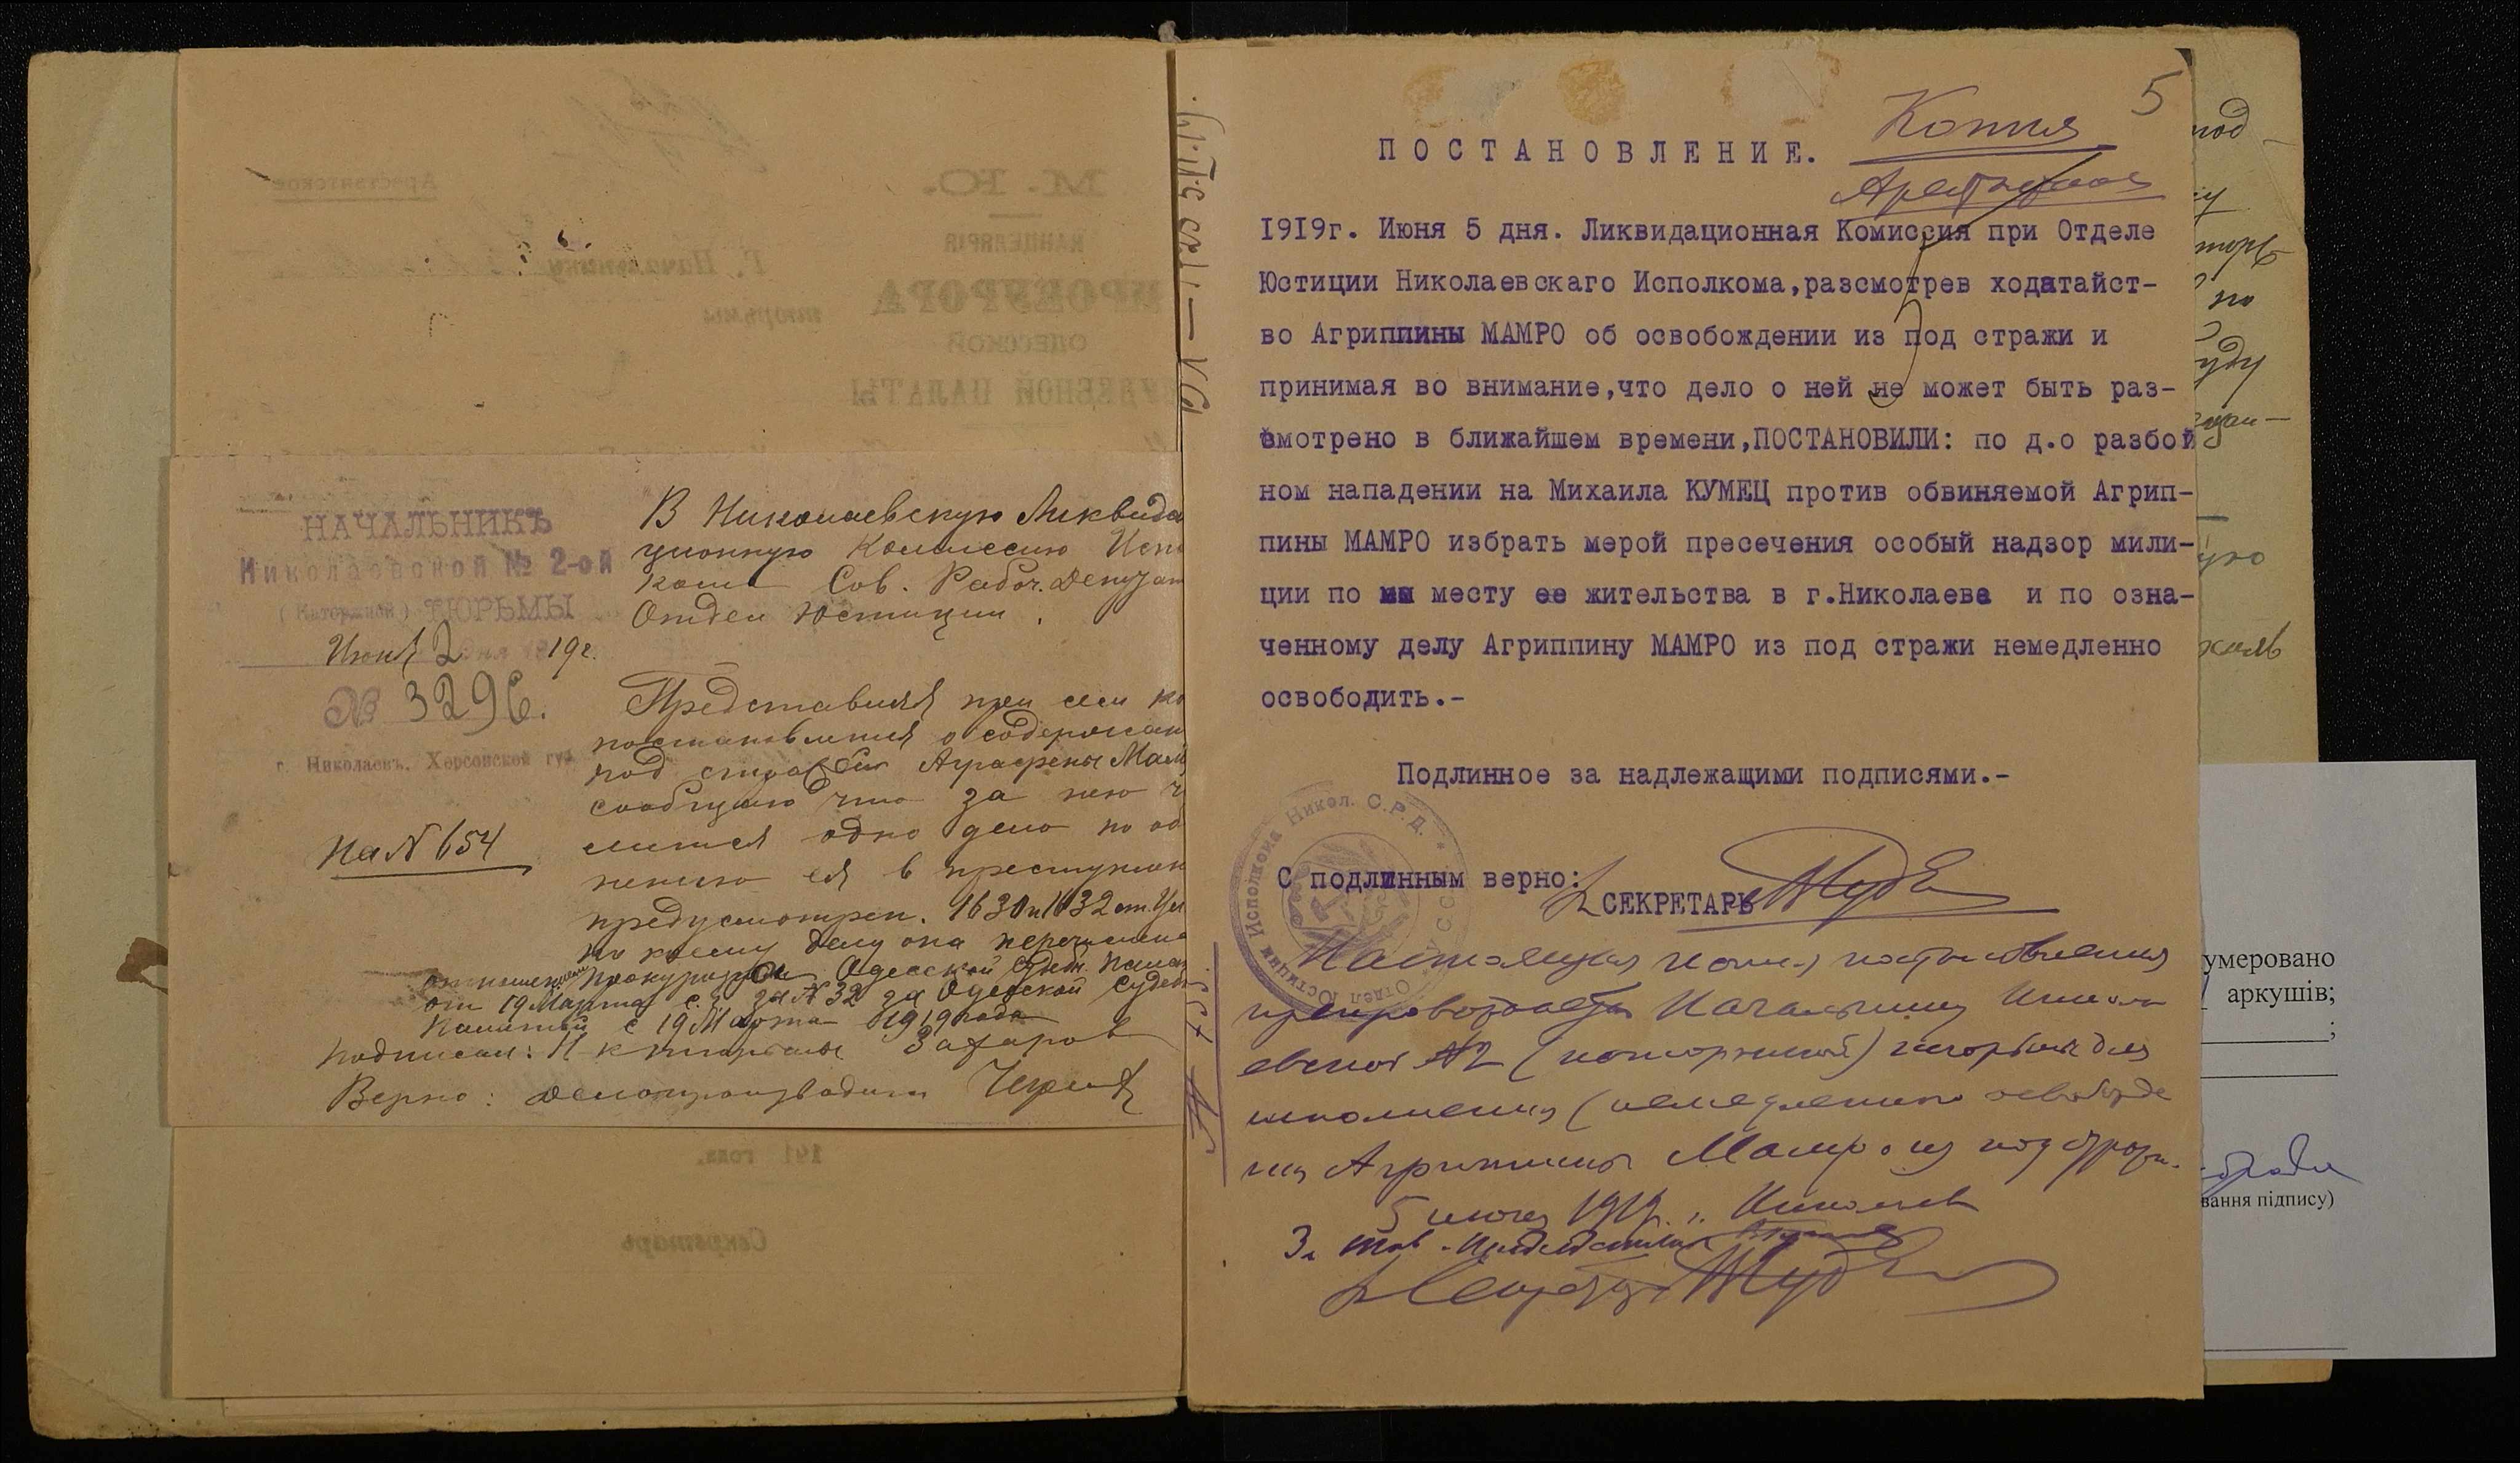 НАЧАЛЬНИКЪ
Николаевской № 2-ой
(Каторжной) ТЮРЬМЫ
Июня 2 дня 19г.
№ 3296.
г. Николаевъ, Херсонской губ.
На № 654
В Николаевскую Ликвида
ционную Комиссию Исп
кома Сов. Рабоч. Депутат
Отдел Юстиции.
Представляя при сем ко
постановления о содержан
под стражей Аграфены Мам
сообщаю что за нею ч
слится одно дело по об
нению ея в преступлен
предусмотрен. 1630 и 1632 ст. Ул
по коему делу она перечислена
отношением Прокурора Одесской Судебн. Палат
от 19 Марта с.г. за № 32 за Одесской Судебн
Палатой с 19 Марта 1919 года
Подписал: Н-к тюрьмы Захаров
Верно: Делопроизводитель
5
Копия
Арестантское
ПОСТАНОВЛЕНИЕ.
1919г. Июня 5 дня. Ликвидационная Комиссия при Отделе
Юстиции Николаевскаго Исполкома,разсмотрев ходатайст-
во Агриппины МАМРО об освобождении из под стражи и
принимая во внимание,что дело о ней не может быть раз-
смотрено в ближайшем времени,ПОСТАНОВИЛИ: по д.о разбой
ном нападении на Михаила КУМЕЦ против обвиняемой Агрип-
пины МАМРО избрать мерой пресечения особый надзор мили-
ции по месту ее жительства в г.Николаеве и по озна-
ченному делу Агриппину МАМРО из под стражи немедленно
освободить.-
Подлинное за надлежащими подписями.-
С подлинным верно:
СЕКРЕТАРЬ
Отдел Юстиции Исполкома Никол. С.Р.Д. * УССР
Настоящая копия постановления
препровождается Начальнику Никола
евской №2 (каторжной) тюрьмы для
исполнения (немедленного освобожде
ния Агриппины Мамро из под стражи.
5 июня 1919 г. г. Николаев
За тов. Председателя
Секретарь
умеровано
аркушів;
;
вання підпису)